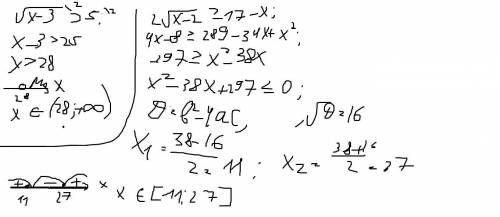 √x-3 \² > 5, \²
x-3 > 25
x > 28
28 x
x ∈ (28;+∞)
2√x-2 ≥ 17-x;
4x-8 ≥ 289-34x+x²;
-297 ≥ x²-38x
x²-38x+297 ≤ 0;
D=b²-4ac, , √D=16
x₁ = 38-16 / 2 = 11; x₂ = 38+16 / 2 = 27
+ - + x
11 27
x ∈ [11;27]